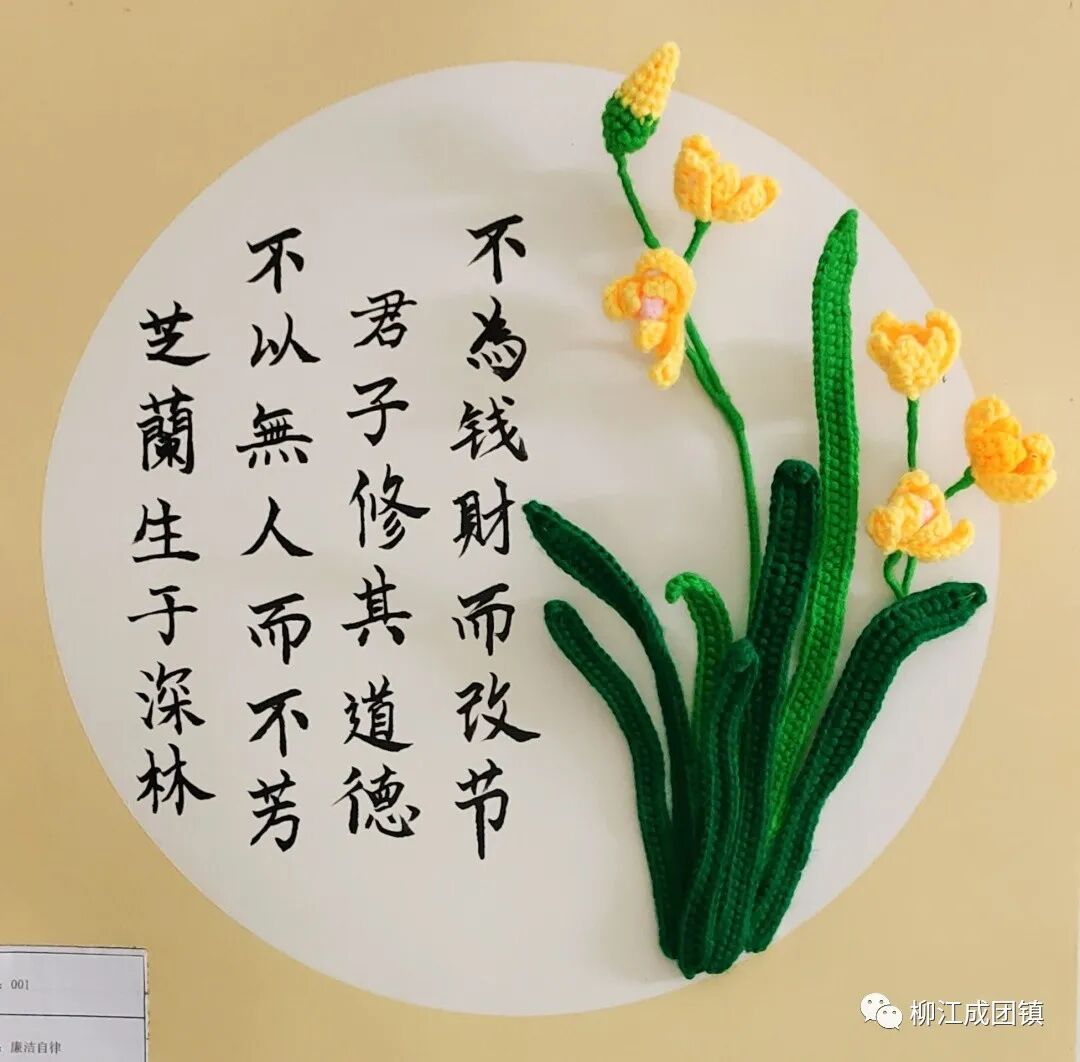 芝蘭生于深林
不以無人而不芳
君子修其道德
不為钱財而改节
：001
：廉洁自律
柳江成团镇